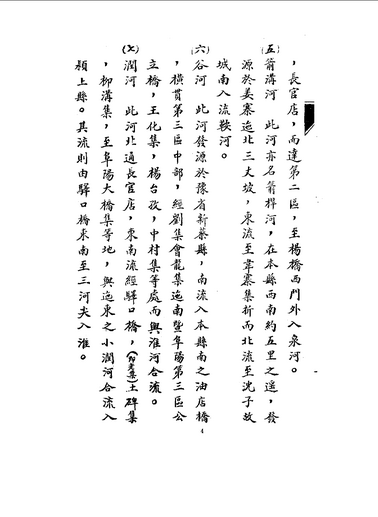 ，長官店，而達第二區，至楊橋西門外入泉河。
(五)箭溝河　此河亦名箭桿河，在本縣西南約五里之遥，發
源於姜寨迤北三丈坡，東流至韋寨集折而北流至沈子故
城南入流鞍河。
(六)谷河　此河發源於豫省新蔡縣，南流入本縣南之油店橋
，橫貫第三區中部，經劉集會龍集迤南暨阜陽第三區公
立橋，王化集，楊台孜，中村集等處而與淮河合流。
(七)潤河　此河北通長官店，東南流經驛口橋，土碑集
，柳溝集，至阜陽大橋集等地，與迤東之小潤河合流入
潁上縣。其流則由驛口橋東南至三河夫入淮。